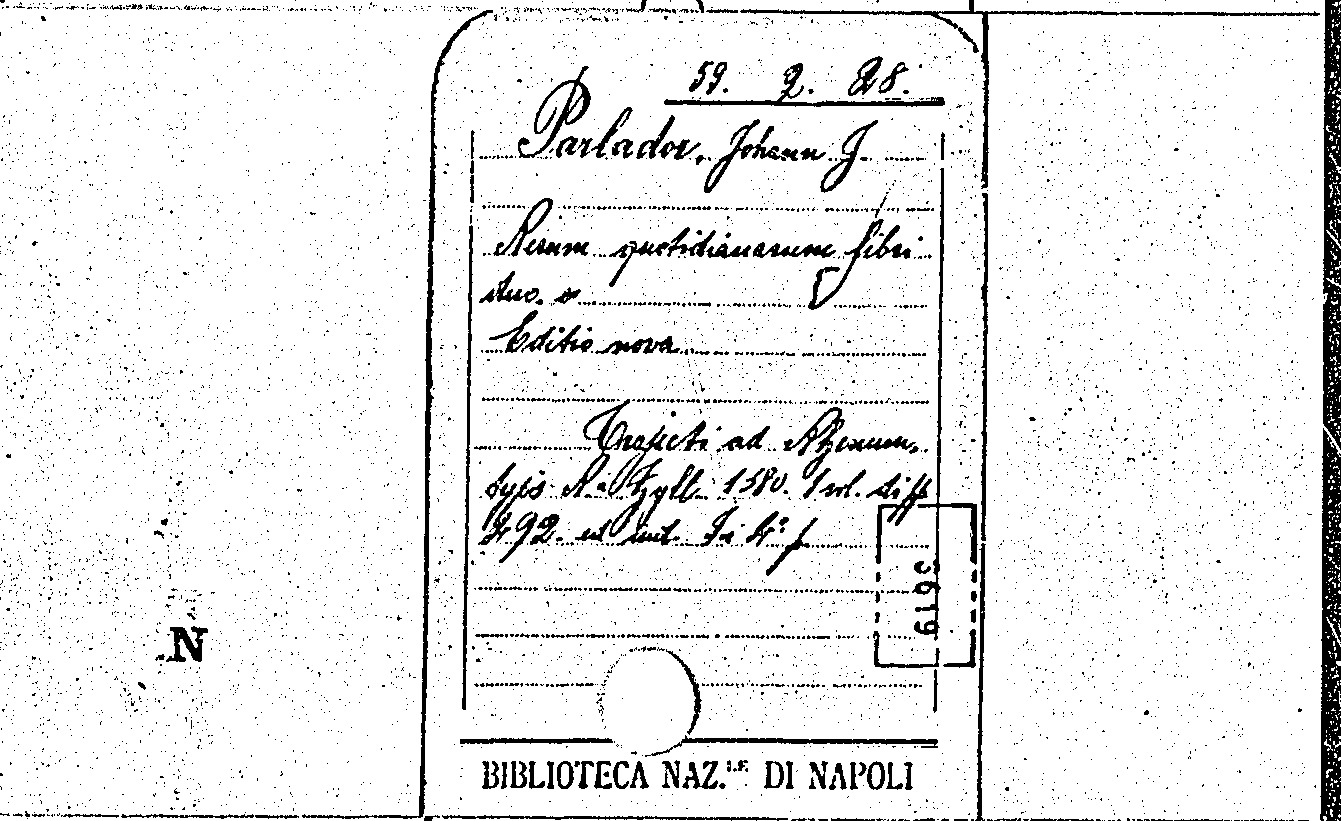 59. 2. 28.
Parlador, Johann J.
Rerum quotidianarum libri
duo.
Editio nova
Trajecti ad Rhenum,
typis A. Zyll. 1580. 1 vol. di ff
492. in 4.° f
3619
N
BIBLIOTECA NAZ.LE DI NAPOLI